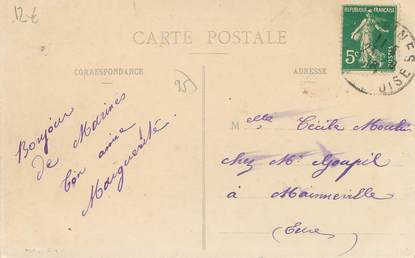 12 €
CARTE POSTALE
CORRESPONDANCE
ADRESSE
RÉPUBLIQUE FRANÇAISE
5c
POSTES
INES
OISE
Bonjour
de Marines
Ton amie
Marguerite
Melle Cécile Moulin
chez Mr Goupil
à Mainneville
(Eure)